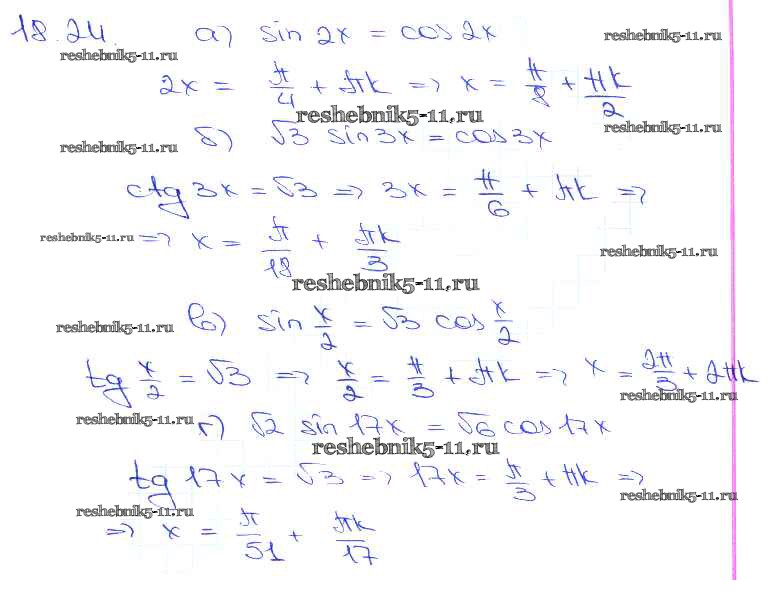 18.24. а) sin 2x = cos 2x
reshebnik5-11.ru reshebnik5-11.ru
2x = π/4 + πk => x = π/8 + πk/2
reshebnik5-11.ru
reshebnik5-11.ru reshebnik5-11.ru
б) √3 sin 3x = cos 3x
ctg 3x = √3 => 3x = π/6 + πk =>
reshebnik5-11.ru => x = π/18 + πk/3 reshebnik5-11.ru
reshebnik5-11.ru
в) sin x/2 = √3 cos x/2
reshebnik5-11.ru
tg x/2 = √3 => x/2 = π/3 + πk => x = 2π/3 + 2πk
reshebnik5-11.ru
reshebnik5-11.ru г) √2 sin 17x = √6 cos 17x
reshebnik5-11.ru
tg 17x = √3 => 17x = π/3 + πk =>
reshebnik5-11.ru reshebnik5-11.ru
=> x = π/51 + πk/17